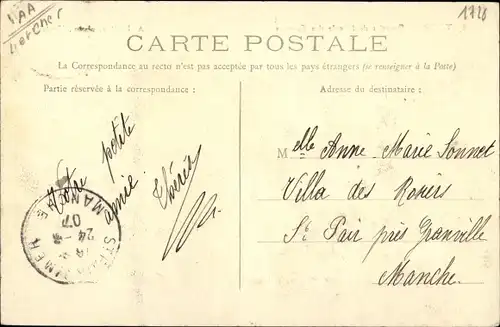 1AA
1728
CARTE POSTALE
La Correspondance au recto n'est pas acceptée par tous les pays étrangers (se renseigner à la Poste)
Partie réservée à la correspondance :
Votre petite
amie
Thérèse
MANCHE
24 - 3
07
Adresse du destinataire :
Melle Anne-Marie Sonnet
Villa des Rosiers
St Pair près Granville
Manche.